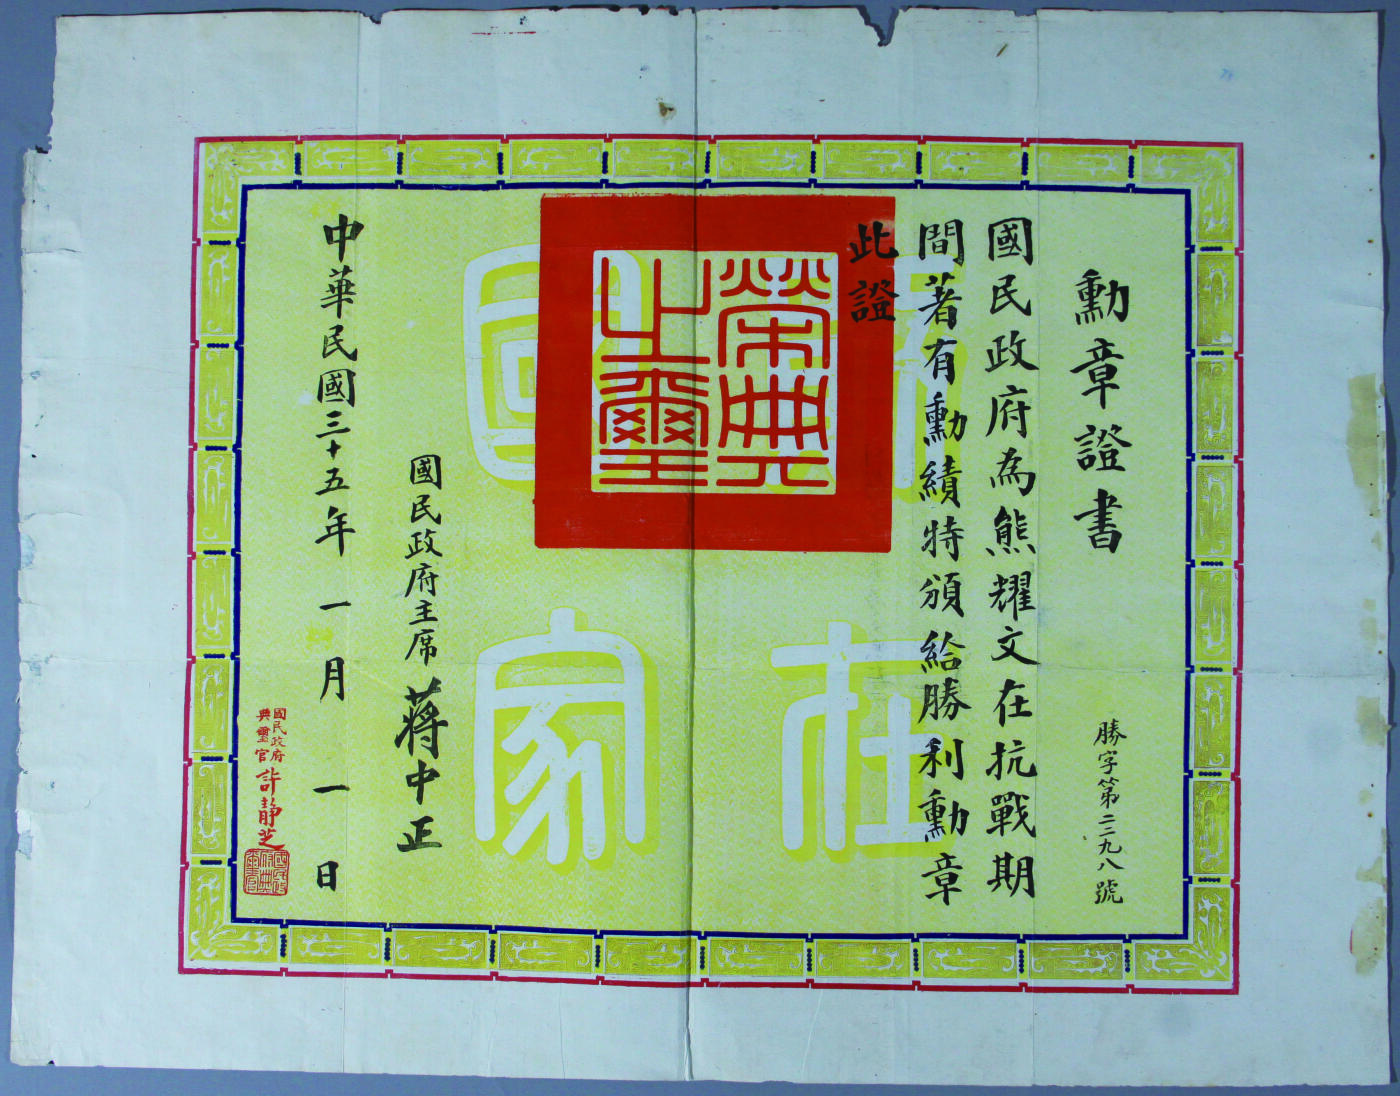 勳章證書
勝字第二二九八號
國民政府為熊耀文在抗戰期
間著有勳績特頒給勝利勳章
此證
榮典
之璽
在
國家
國民政府主席 蔣中正
中華民國三十五年一月一日
國民政府
典璽官 許靜芝